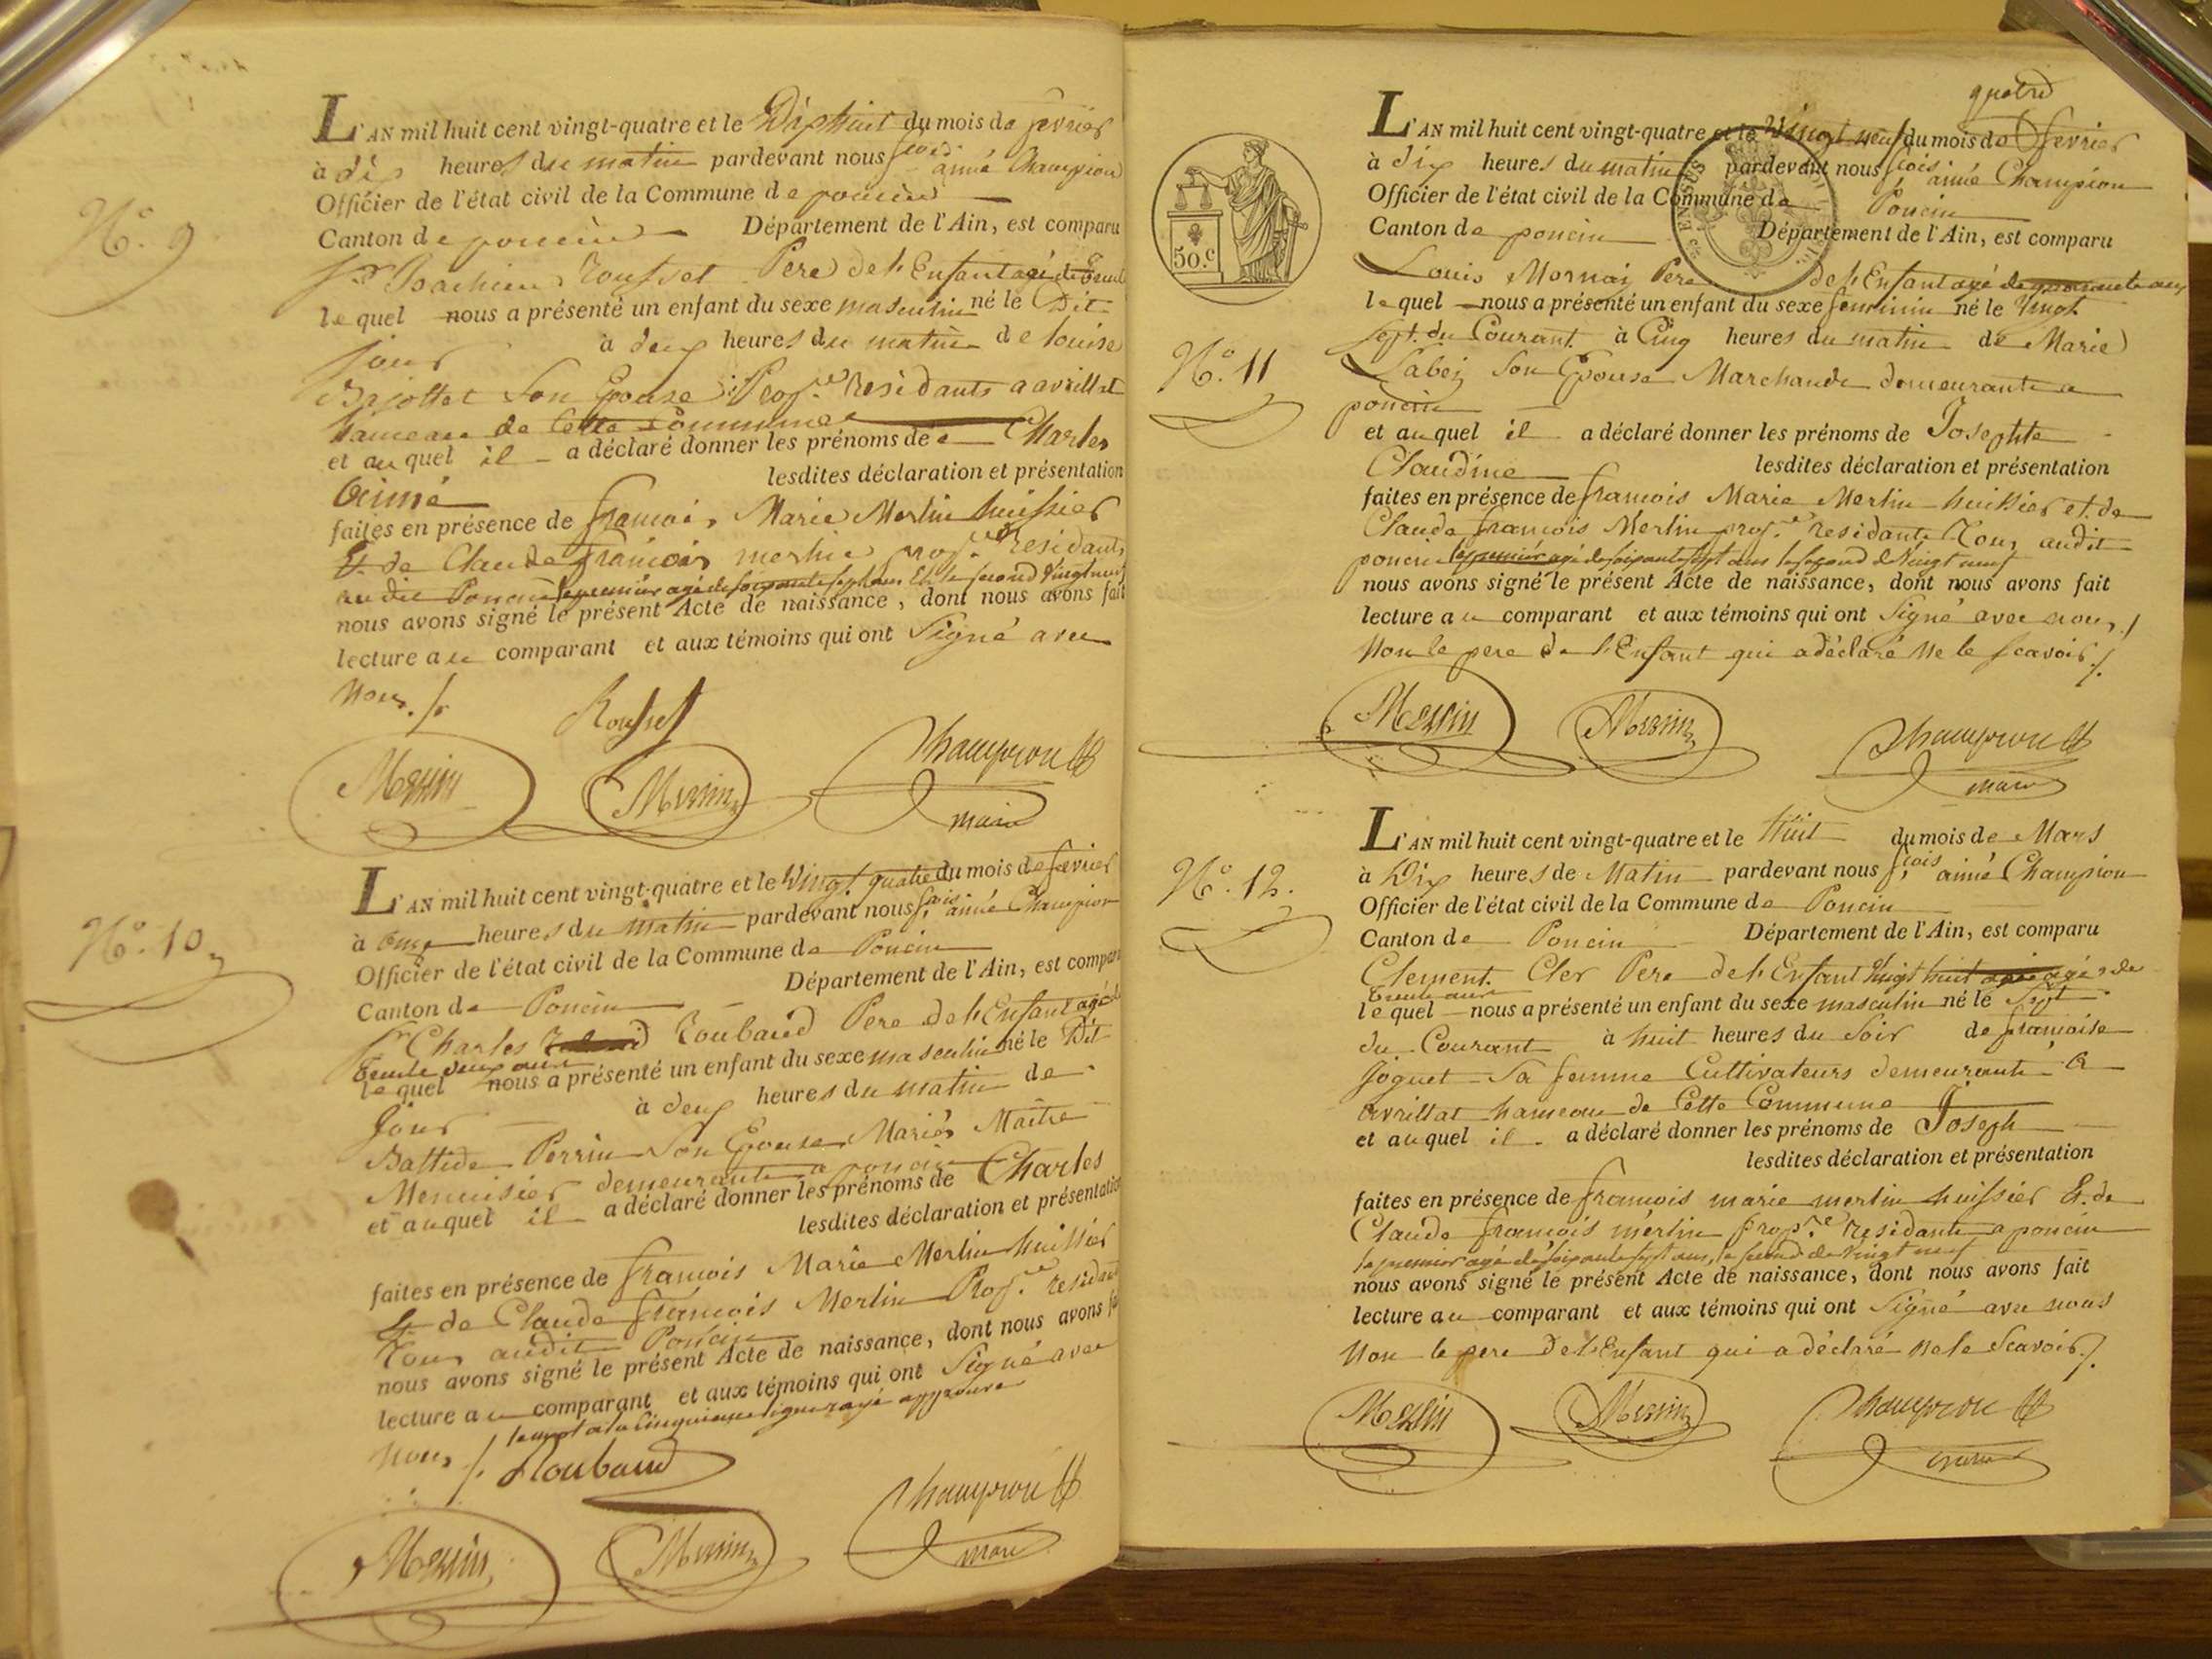 N.o 9
L'AN mil huit cent vingt-quatre et le Dixhuit du mois de fevrier
à dix heures du matin pardevant nous f.cois aimé Champion
Officier de l'état civil de la Commune de poncin
Canton de poncin Département de l'Ain, est comparu
Joachim Rousset Pere de l'Enfant agé de
lequel nous a présenté un enfant du sexe masculin né le Dit
jour à deux heures du matin de Louise
Bajollet Son Epouse residants a avrillat
hameau de Cette Commune
et auquel il a déclaré donner les prénoms de Charles
Aimé lesdites déclaration et présentation
faites en présence de francois Marie Merlin huissier
Et de Claude francois merlin residants
audit Poncin le premier agé de soixante sept ans Et le second vingt neuf
nous avons signé le présent Acte de naissance, dont nous avons fait
lecture au comparant et aux témoins qui ont Signé avec
Nous ./.
Rousset
Merlin Merlin Champion
maire
N.o 10
L'AN mil huit cent vingt-quatre et le Vingt quatre du mois de fevrier
à onze heures du matin pardevant nous f.cois aimé Champion
Officier de l'état civil de la Commune de Poncin
Canton de Poncin Département de l'Ain, est comparu
S.r Charles Roubaud Pere de l'Enfant agé de
trente deux ans
lequel nous a présenté un enfant du sexe masculin né le Dit
Jour à deux heures du matin de
Battide Perrin Son Epouse Mariés Maitre
Menuisier demeurants a poncin
et auquel il a déclaré donner les prénoms de Charles
lesdites déclaration et présentation
faites en présence de francois Marie Merlin huissier
Et de Claude francois Merlin residants
Tous audit Poncin
nous avons signé le présent Acte de naissance, dont nous avons fait
lecture au comparant et aux témoins qui ont Signé avec
Nous ./. le mot a la Cinquieme ligne rayé approuvé
Roubaud
Merlin Merlin Champion
maire
50.c
N.o 11
quatre
L'AN mil huit cent vingt-quatre et le Vingt neuf du mois de fevrier
à dix heures du matin pardevant nous f.cois aimé Champion
Officier de l'état civil de la Commune de Poncin
Canton de poncin Département de l'Ain, est comparu
Louis Mornay Pere de l'Enfant agé de quarante ans
lequel nous a présenté un enfant du sexe feminin né le Vingt
Sept du Courant à Cinq heures du matin de Marie
Labey Son Epouse Marchands demeurants a
poncin
et auquel il a déclaré donner les prénoms de Josephte
Claudine lesdites déclaration et présentation
faites en présence de francois Marie Merlin huissier et de
Claude francois Merlin residants Tous audit
poncin le premier agé de soixante sept ans le second de Vingt neuf
nous avons signé le présent Acte de naissance, dont nous avons fait
lecture au comparant et aux témoins qui ont Signé avec nous ./
Non le pere de l'Enfant qui a déclaré Ne le scavoir ./.
Merlin Merlin Champion
maire
N.o 12.
L'AN mil huit cent vingt-quatre et le Huit du mois de Mars
à Dix heures de Matin pardevant nous f.cois aimé Champion
Officier de l'état civil de la Commune de Poncin
Canton de Poncin Département de l'Ain, est comparu
Clement Cler Pere de l'Enfant Vingt huit agé de
trente ans
lequel nous a présenté un enfant du sexe masculin né le Sept
du Courant à huit heures du Soir de francoise
Joguet Sa femme Cultivateurs demeurants a
avrillat hameau de Cette Commune
et auquel il a déclaré donner les prénoms de Joseph
lesdites déclaration et présentation
faites en présence de francois marie merlin huissier Et de
Claude francois merlin prop.re residants a poncin
le premier agé de soixante sept ans, le second de Vingt neuf
nous avons signé le présent Acte de naissance, dont nous avons fait
lecture au comparant et aux témoins qui ont Signé avec nous
Non le pere de l'Enfant qui a déclaré Ne le Scavoir ./.
Merlin Merlin Champion
maire